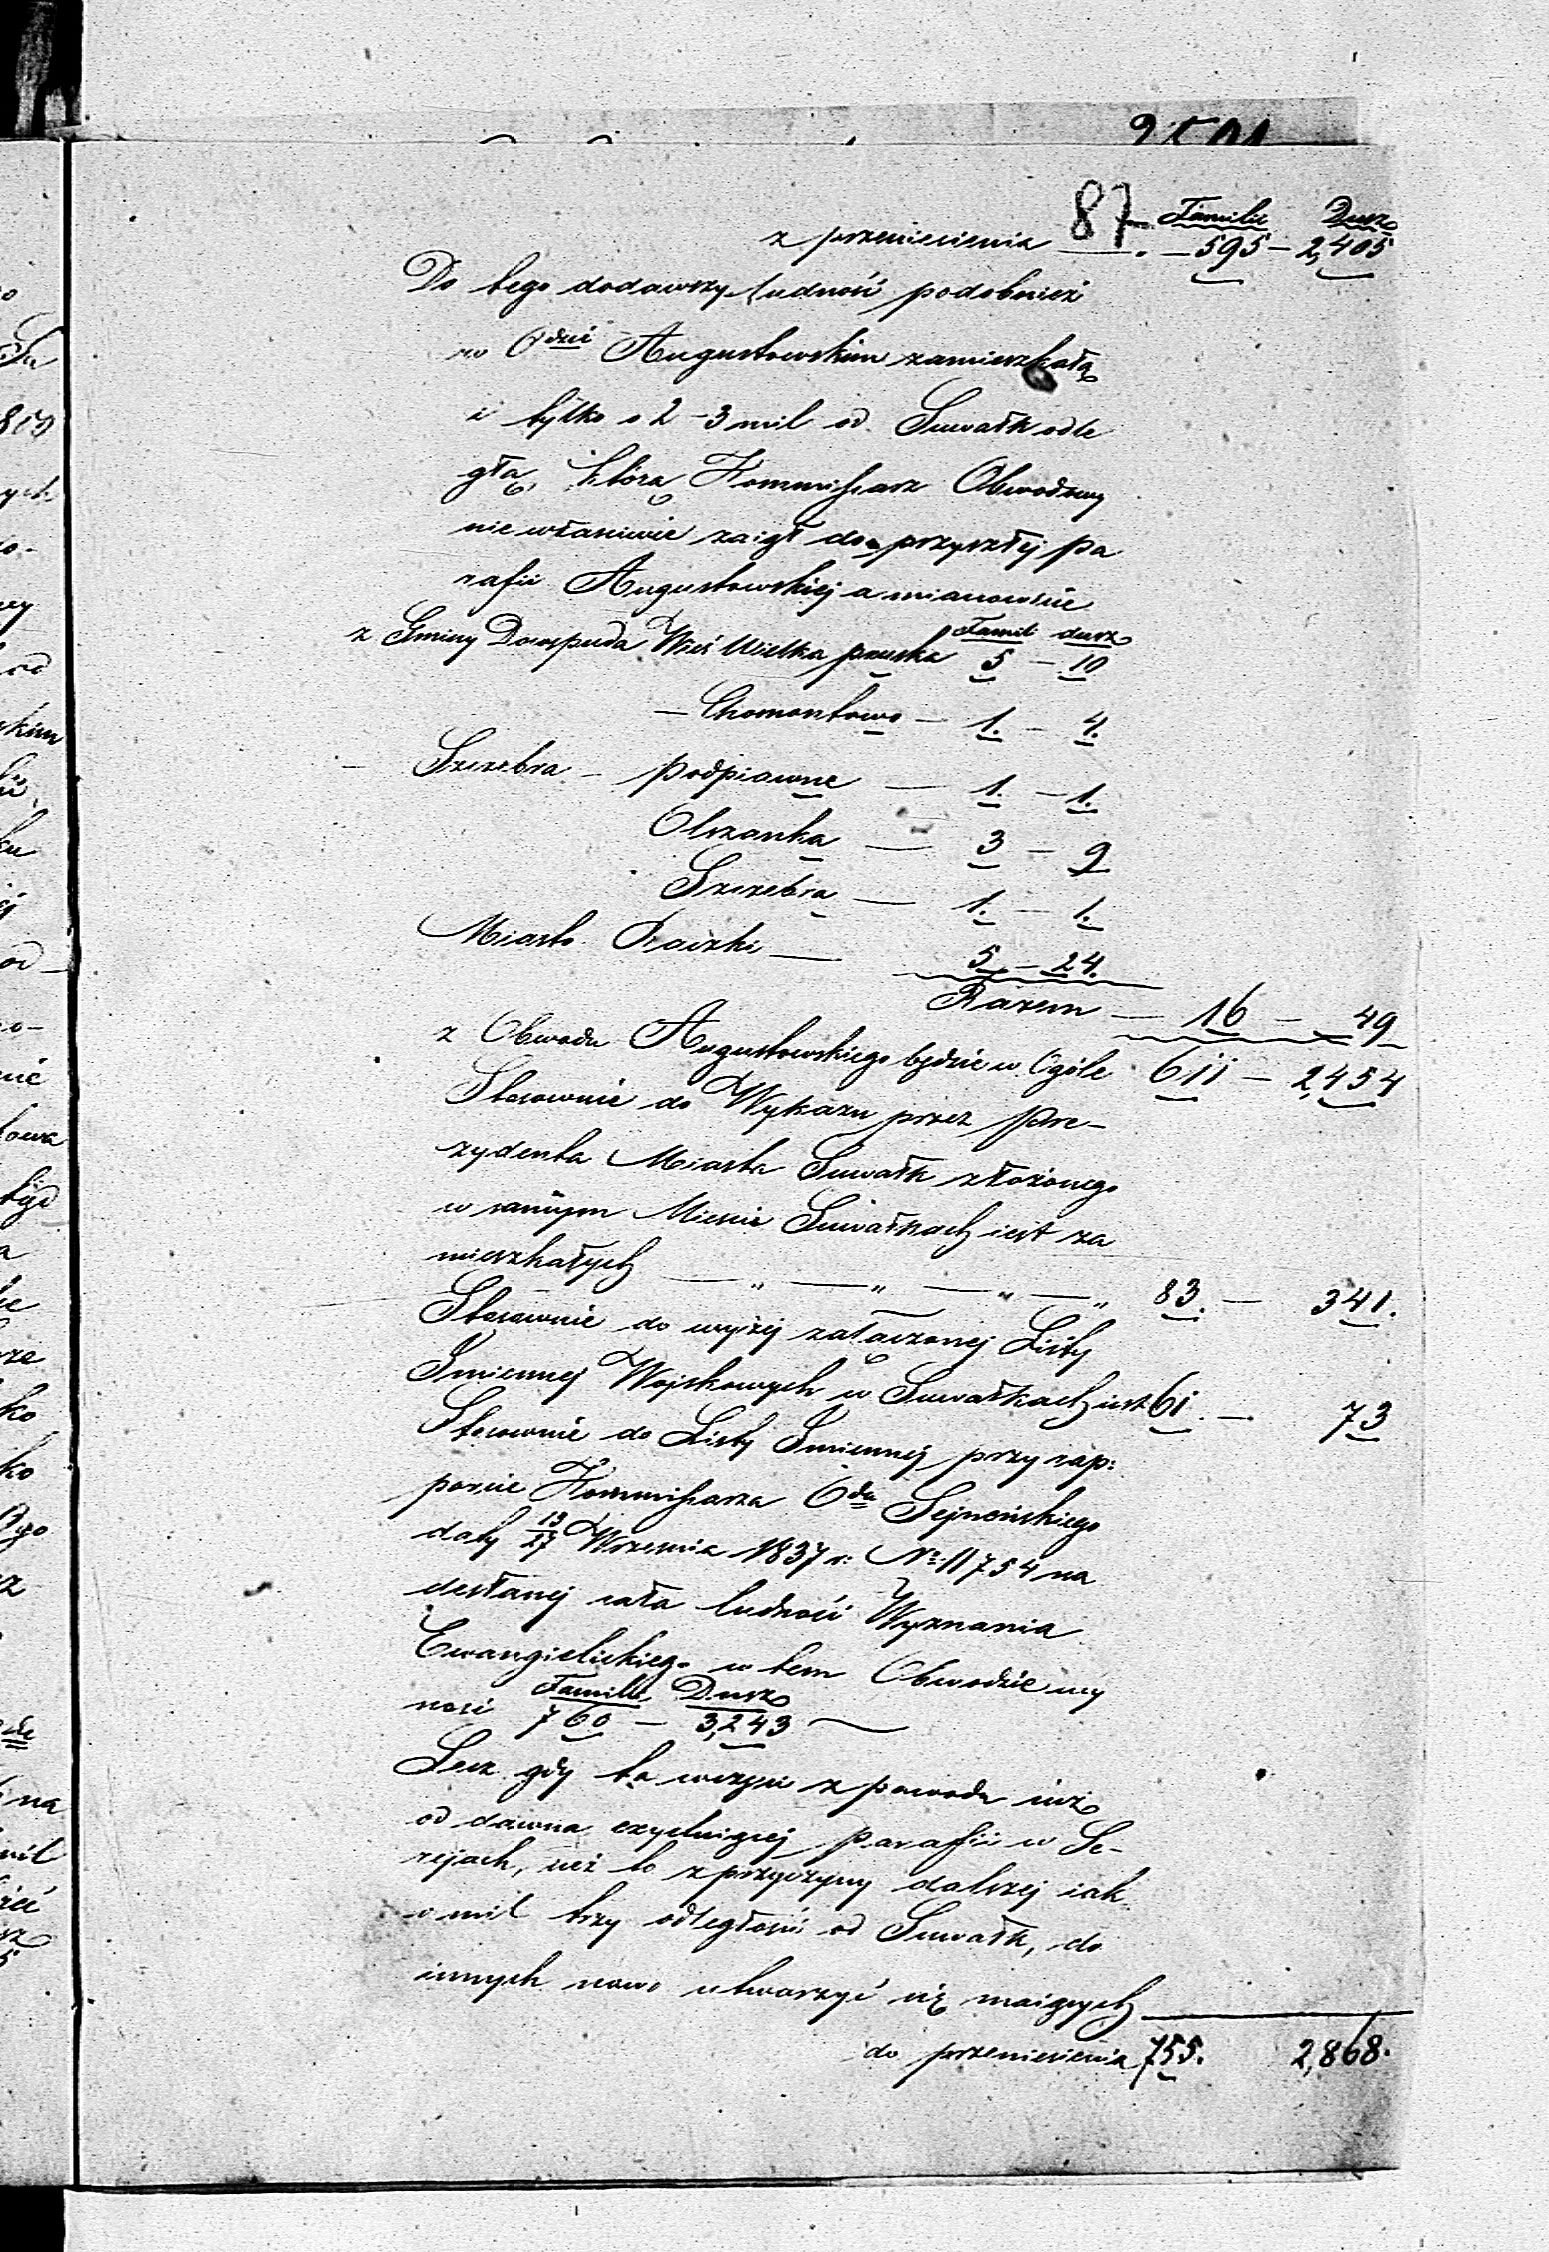 87
Familii Dusz
z przeniesienia — 595 — 2,405
Do tego dodawszy ludność podobnież
w Odzie Augustowskim zamieszkałą
i tylko o 2-3 mil od Suwałk odle
głą, którą Kommissarz Obwodowy
niewłaściwie zaiął do przyszłéj pa
rafii Augustowskiej a mianowicie
Famil dusz
z Gminy Dowspuda Wieś Wielka pruska 5 — 10
— Chomontowo — 1. — 4.
— Szczebra — Podpiawne — 1. — 1.
Olszanka — 3 — 9
Szczebra — 1. — 1.
Miasto Raczki — 5 — 24.
Razem — 16 — 49
z Obwodu Augustowskiego będzie w Ogóle 611 — 2,454
Stosownie do Wykazu przez Pre-
zydenta Miasta Suwałk złożonego
w samym Mieście Suwałkach iest za
mieszkałych — „ — „ — „ — „ 83. — 341.
Stosownie do wyżéj załączonéj Listy
Imiennej Wojskowych w Suwałkach iest 61. — 73
Stosownie do Listy Imiennéj przy rap:
porcie Kommissarza Oda Sejneńskiego
daty 13/27 Września 1837 r: No 11754 na
desłanéj cała ludność Wyznania
Ewangielickiego w tem Obwodzie wy
Familii Dusz
nosi 760 — 3,243
Lecz gdy ta częsci z powodu iuż
od dawna exystuiącéj Parafii w Se-
rejach, iuż to z przyczyny dalszéj iak
o mil trzy odległości od Suwałk, do
innych nowo utworzyć się maiących
do przeniesienia 755. 2,868.